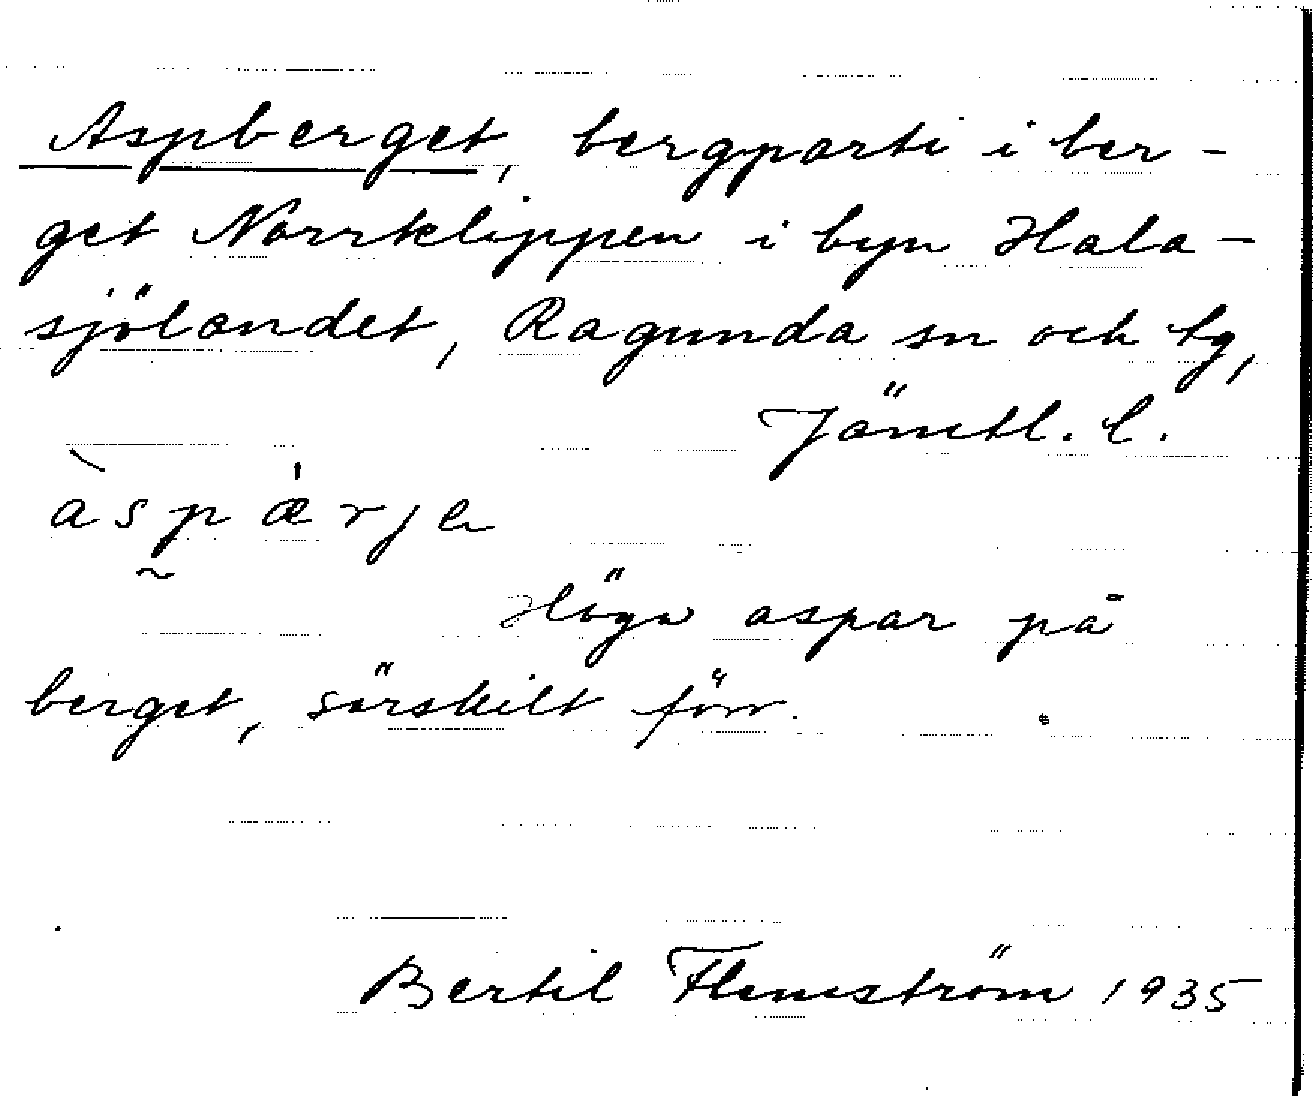 Aspberget, bergparti i ber-
get Norrklippen i byn Hala-
sjölandet, Ragunda sn och tg,
Jämtl. l.
àspæ̍rje
Höga aspar på
berget, särskilt förr.
Bertil Flemström 1935